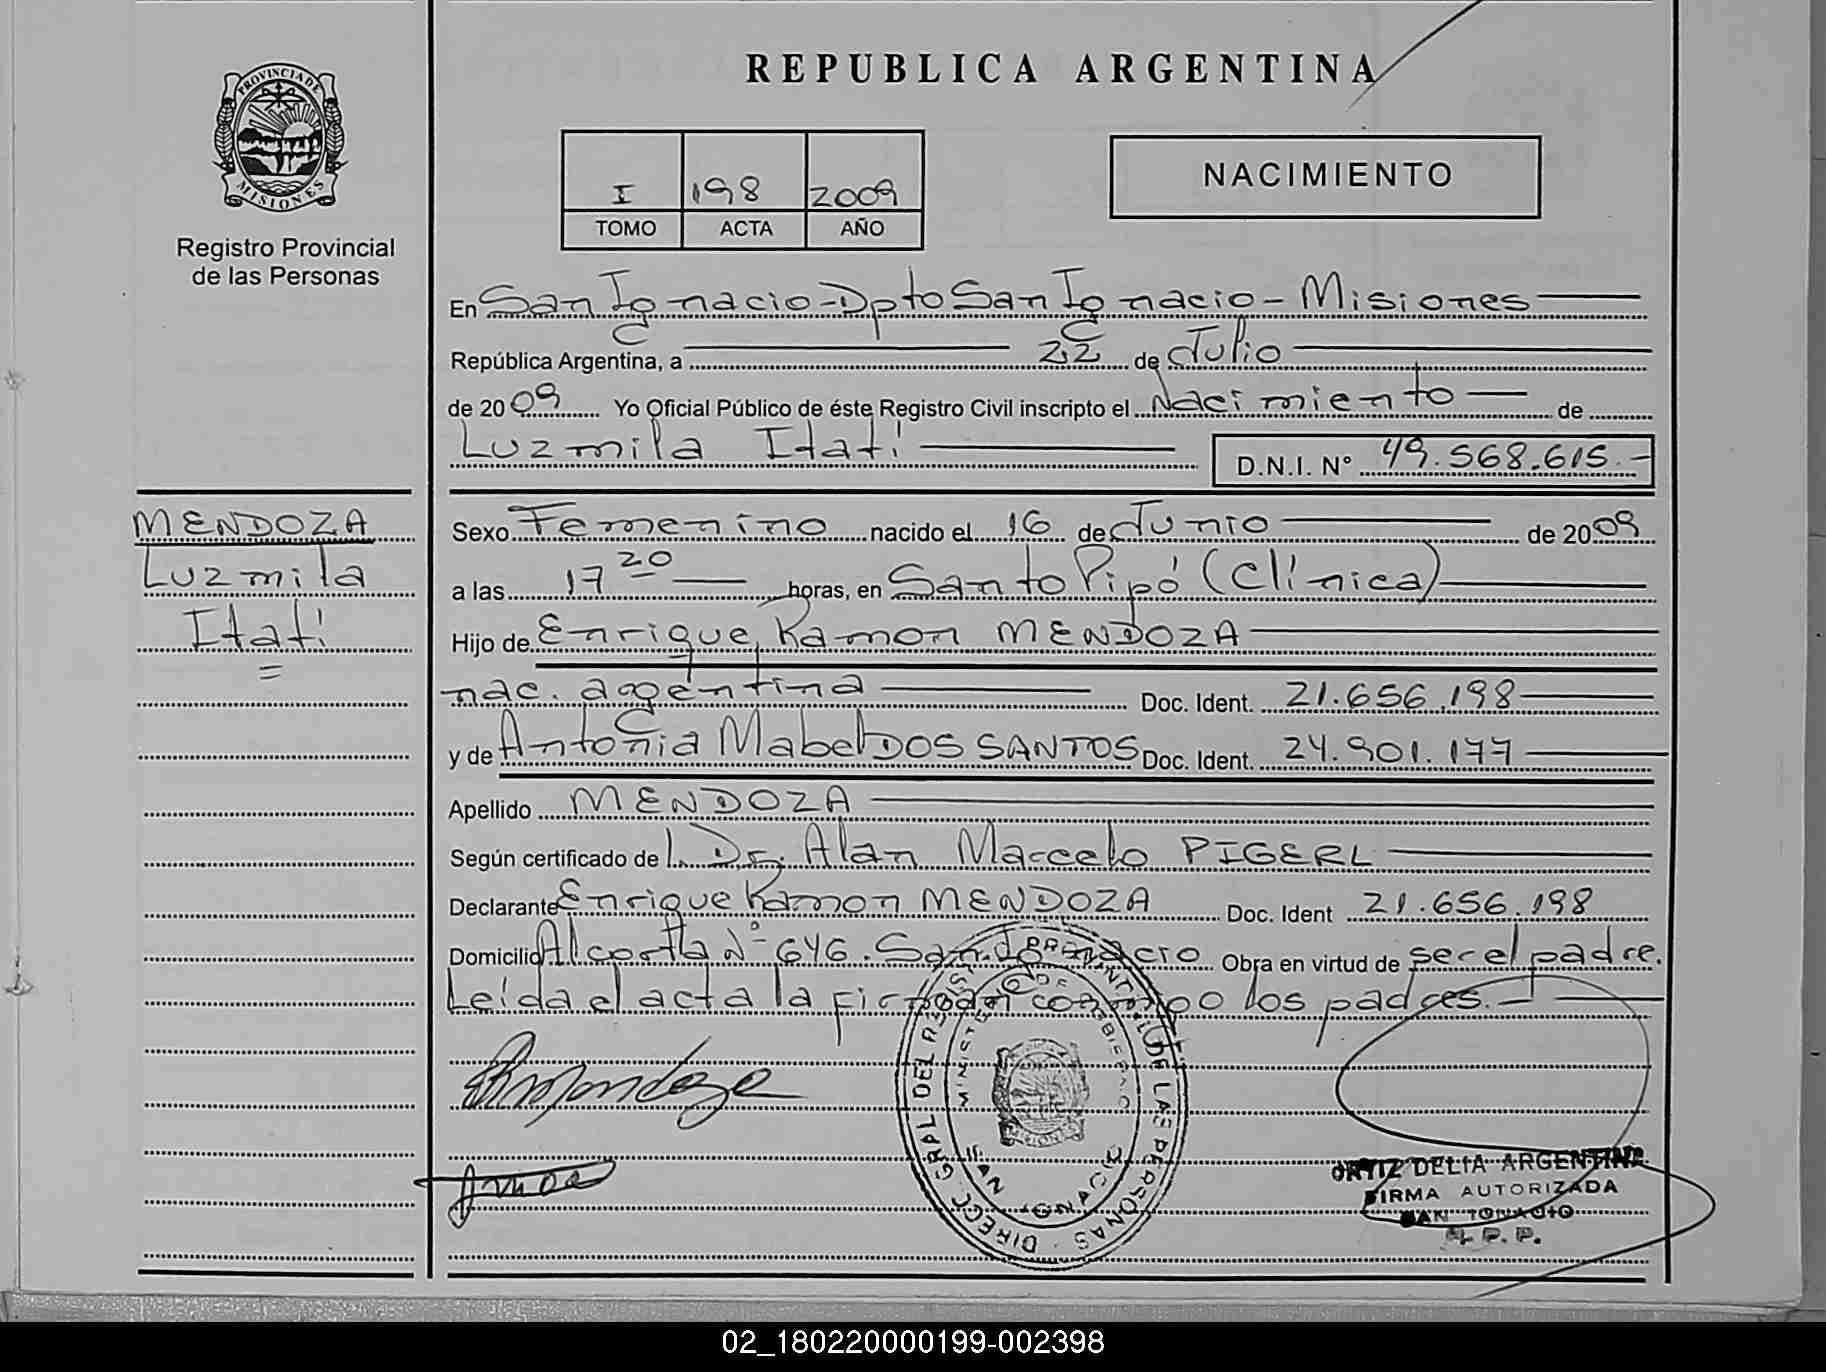 PROVINCIA DE
MISIONES
Registro Provincial
de las Personas
MENDOZA
Luzmila
Itatí
=
REPUBLICA ARGENTINA
I 198 2009
TOMO ACTA AÑO
NACIMIENTO
En San Ignacio - Dpto San Ignacio - Misiones
República Argentina, a 22 de Julio
de 2009 Yo Oficial Público de éste Registro Civil inscripto el Nacimiento de
Luzmila Itatí D.N.I. Nº 49.568.615.-
Sexo Femenino nacido el 16 de Junio de 2009
a las 17 20 horas, en Santo Pipó (Clínica)
Hijo de Enrique Ramon MENDOZA
nac. argentina Doc. Ident. 21.656.198
y de Antonia Mabel DOS SANTOS Doc. Ident. 24.901.177
Apellido MENDOZA
Según certificado de l. Dr. Alan Marcelo PIGERL
Declarante Enrique Ramon MENDOZA Doc. Ident 21.656.198
Domicilio Alcorta Nº 646. San Ignacio Obra en virtud de ser el padre.
Leída el acta la firman conmigo los padres.
DIRECC. GRAL DEL REGIST. PROVINCIAL DE LAS PERSONAS
MINISTERIO DE GOBIERNO
SAN IGNACIO
MISIONES
ORTIZ DELIA ARGENTINA
FIRMA AUTORIZADA
SAN IGNACIO
R. P. P.
02_180220000199-002398